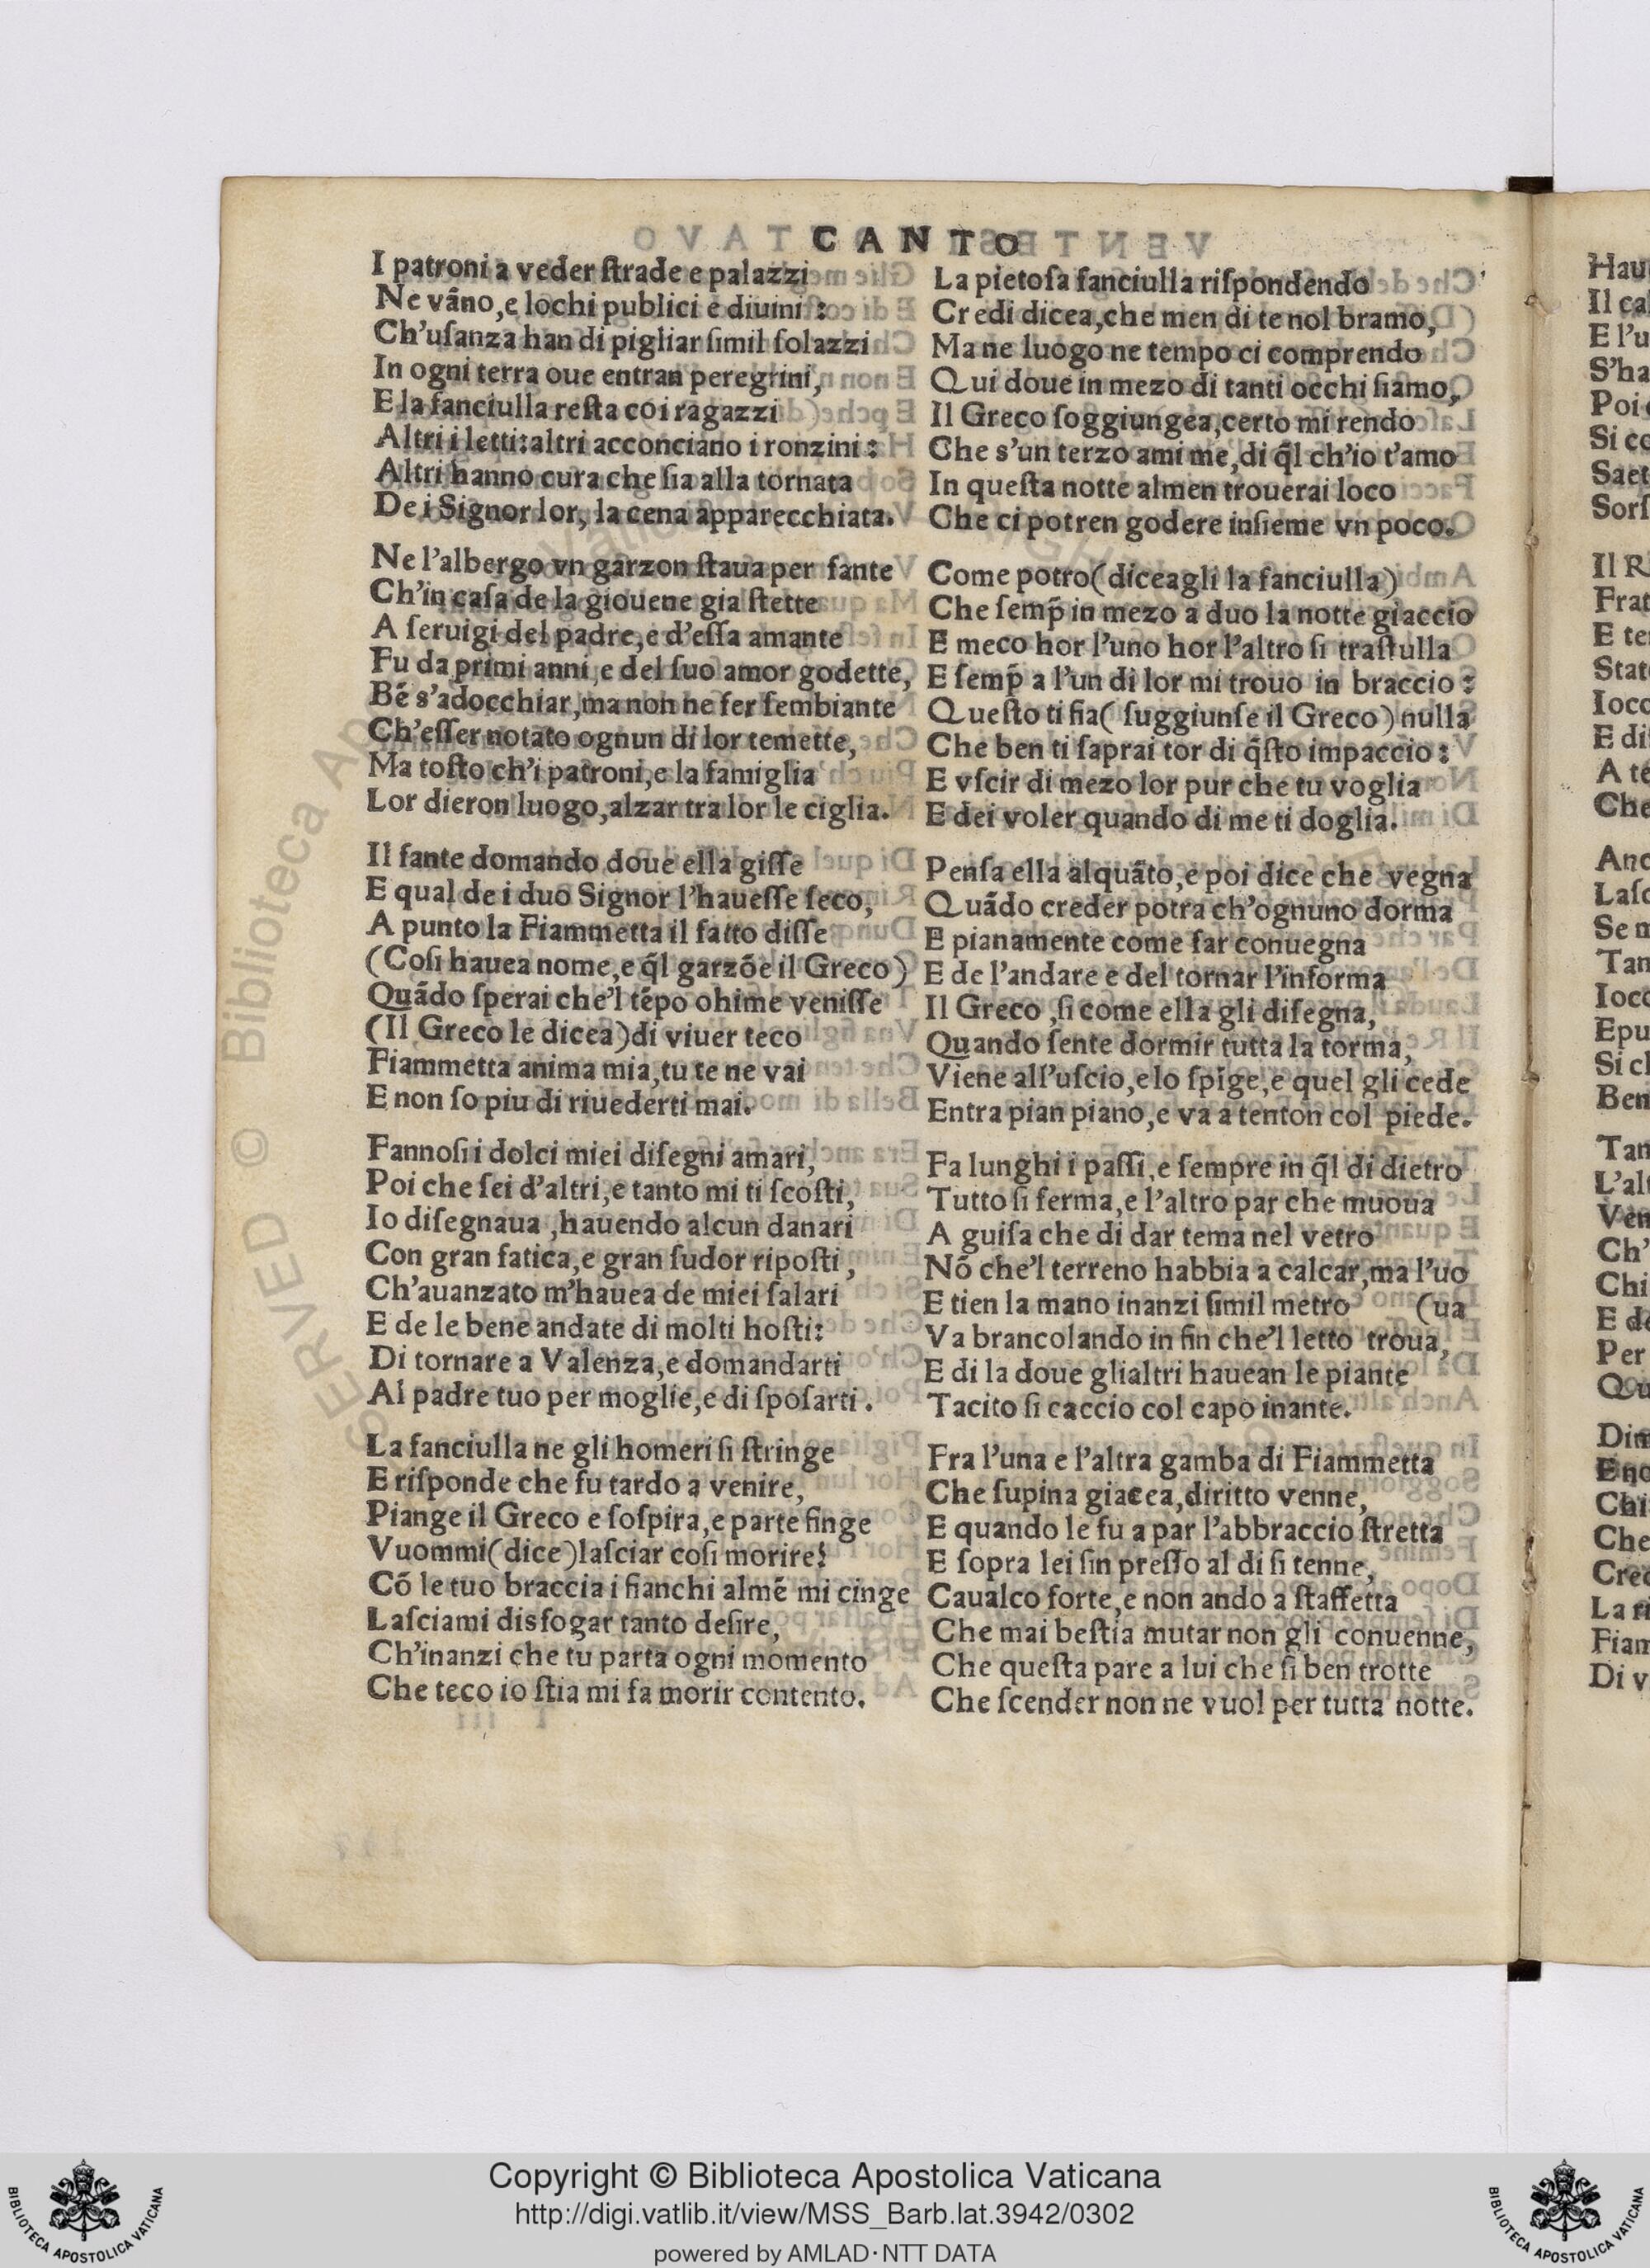 CANTO
I patroni a veder ſtrade e palazzi
Ne vãno,e lochi publici e diuini :
Ch'uſanza han di pigliar ſimil ſolazzi
In ogni terra oue entran peregrini,
E la fanciulla reſta co i ragazzi
Altri i letti:altri acconciano i ronzini :
Altri hanno cura che ſia alla tornata
De i Signor lor, la cena apparecchiata.
Ne l'albergo vn garzon ſtaua per fante
Ch'in caſa de la giouene gia ſtette
A ſeruigi del padre,e d'eſſa amante
Fu da primi anni,e del ſuo amor godette,
Bẽ s'adocchiar,ma non ne fer ſembiante
Ch'eſſer notato ognun di lor temette,
Ma toſto ch'i patroni,e la famiglia
Lor dieron luogo,alzar tra lor le ciglia.
Il fante domando doue ella giſſe
E qual de i duo Signor l'haueſſe ſeco,
A punto la Fiammetta il fatto diſſe
(Coſi hauea nome,e q̃l garzõe il Greco)
Quãdo ſperai che'l tẽpo ohime veniſſe
(Il Greco le dicea)di viuer teco
Fiammetta anima mia,tu te ne vai
E non ſo piu di riuederti mai.
Fannoſi i dolci miei diſegni amari,
Poi che ſei d'altri,e tanto mi ti ſcoſti,
Io diſegnaua ,hauendo alcun danari
Con gran fatica,e gran ſudor ripoſti ,
Ch'auanzato m'hauea de miei ſalari
E de le bene andate di molti hoſti:
Di tornare a Valenza,e domandarti
Al padre tuo per moglie,e di ſpoſarti .
La fanciulla ne gli homeri ſi ſtringe
E riſponde che fu tardo a venire,
Piange il Greco e ſoſpira,e parte finge
Vuommi(dice)laſciar coſi morire?
Cõ le tuo braccia i fianchi almẽ mi cinge
Laſciami disfogar tanto deſire,
Ch'inanzi che tu parta ogni momento
Che teco io ſtia mi fa morir contento.
La pietoſa fanciulla riſpondendo
Credi dicea,che men di te nol bramo,
Ma ne luogo ne tempo ci comprendo
Qui doue in mezo di tanti occhi ſiamo,
Il Greco ſoggiungea,certo mi rendo
Che s'un terzo ami me,di q̃l ch'io t'amo
In queſta notte almen trouerai loco
Che ci potren godere inſieme vn poco.
Come potro(diceagli la fanciulla)
Che ſemp̃ in mezo a duo la notte giaccio
E meco hor l'uno hor l'altro ſi traſtulla
E ſemp̃ a l'un di lor mi trouo in braccio :
Queſto ti fia( ſuggiunſe il Greco)nulla
Che ben ti ſaprai tor di q̃ſto impaccio :
E vſcir di mezo lor pur che tu voglia
E dei voler quando di me ti doglia.
Penſa ella alquãto,e poi dice che vegna
Quãdo creder potra ch'ognuno dorma
E pianamente come far conuegna
E de l'andare e del tornar l'informa
Il Greco ,ſi come ella gli diſegna,
Quando ſente dormir tutta la torma,
Viene all'uſcio,e lo ſpĩge,e quel gli cede
Entra pian piano,e va a tenton col piede.
Fa lunghi i paſſi,e ſempre in q̃l di dietro
Tutto ſi ferma,e l'altro par che muoua
A guiſa che di dar tema nel vetro
Nõ che'l terreno habbia a calcar,ma l'uo
E tien la mano inanzi ſimil metro (ua
Va brancolando in fin che'l letto troua,
E di la doue glialtri hauean le piante
Tacito ſi caccio col capo inante.
Fra l'una e l'altra gamba di Fiammetta
Che ſupina giacea,diritto venne,
E quando le fu a par l'abbraccio ſtretta
E ſopra lei ſin preſſo al di ſi tenne,
Caualco forte,e non ando a ſtaffetta
Che mai beſtia mutar non gli conuenne,
Che queſta pare a lui che ſi ben trotte
Che ſcender non ne vuol per tutta notte.
Hau
Il cal
E l'u
S'ha
Poi
Si co
Saet
Sorſ
Il R
Frat
E te
Stat
Ioco
E di
A te
Che
Anc
Laſc
Se m
Tan
Ioco
Epu
Si ch
Ben
Tan
L'alt
Ven
Ch'
Chi
E de
Per
Qu
Dim
E no
Chi
Che
Cred
La
Fiam
Di v
Copyright © Biblioteca Apostolica Vaticana
http://digi.vatlib.it/view/MSS_Barb.lat.3942/0302
powered by AMLAD·NTT DATA
BIBLIOTECA APOSTOLICA VATICANA
BIBLIOTECA APOSTOLICA VATICANA